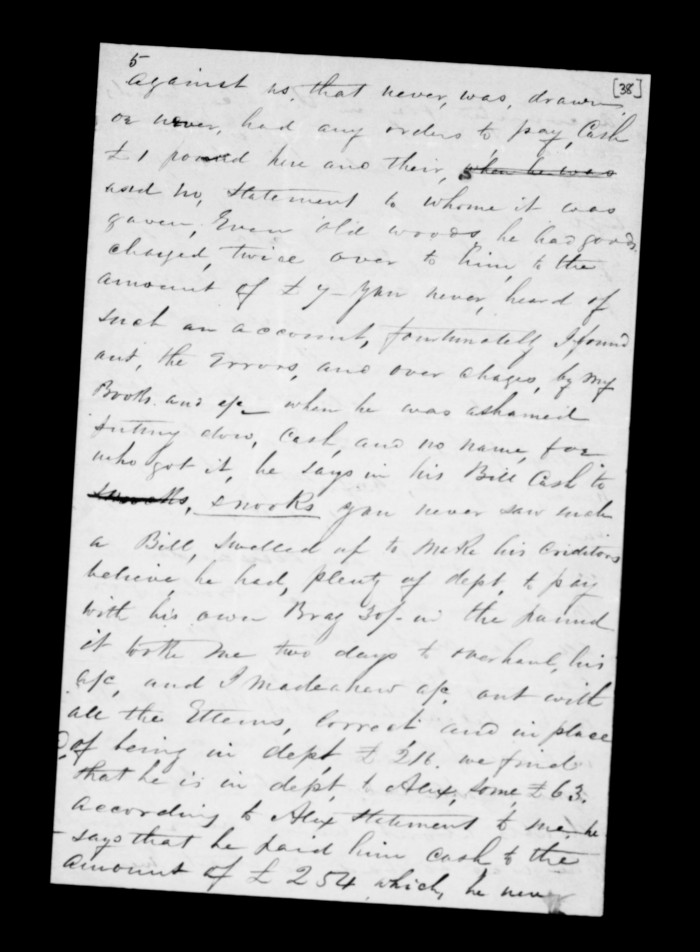 5
[38]
against us, that never, was, drawn,
or never, had any orders to pay, Cash
£1 pound here and their, when he was
ased no, Statement to whome it was
gaven, Even old woods, he had goods
chaged, twice over to him, to the
amount of £7 - you never, heard of
such an account, fortunately I found
out, the Errors, and over chages, by my
Books and a/c when he was ashamed
puting dow, Cash, and no name, for
who got it, he says in his Bill Cash to
snooks, snooks you never saw such
a Bill, swelled up to make his Criditors
believe, he had, plenty of dept, to pay
with his own Brag 20/- in the pound
it tooke me two days to overhaul, his
a/c, and I made a new a/c. out with
all the Ettems, Correct and in place
of being in dept, £216. we find
that he is in dept, to Alex, some, £63.
according to Alex statement to me, he
says that he paid him cash to the
amount of £254 which, he never